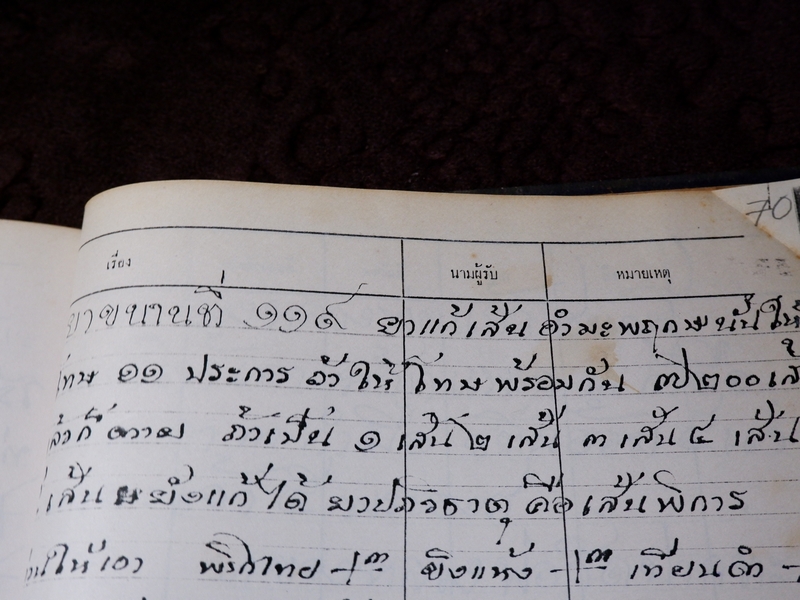 70
เรื่อง นามผู้รับ หมายเหตุ
ยาขนานที่ ๑๑๙ ยาแก้เส้น อำมะพฤกษนั้นให้
โทษ ๑๑ ประการ ถ้าให้โทษพร้อมกัน ๗๒๐๐ เส้
แล้วก็ตาย ถ้าเปน ๑ เส้น ๒ เส้น ๓ เส้น ๔ เส้น
เส้น ยังแก้ได้ ยาปภัรธาตุ คือ เส้นพิการ
ท่านให้เอา พริกไทย ขิงแห้ง เทียนดำ